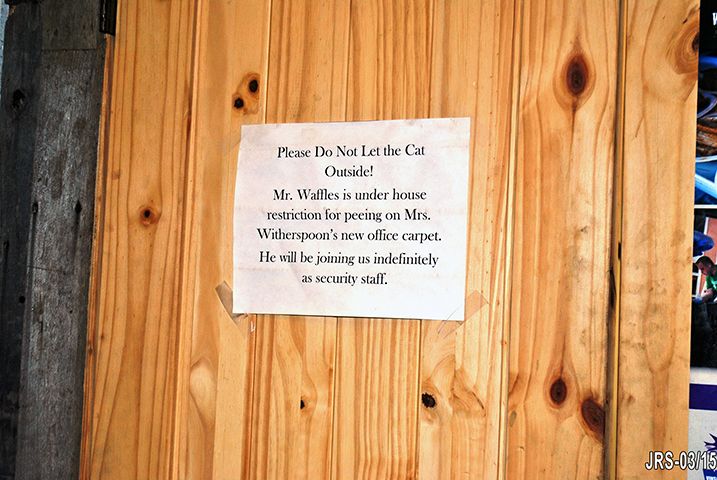 Please Do Not Let the Cat
Outside!
Mr. Waffles is under house
restriction for peeing on Mrs.
Witherspoon's new office carpet.
He will be joining us indefinitely
as security staff.
JRS-03/15